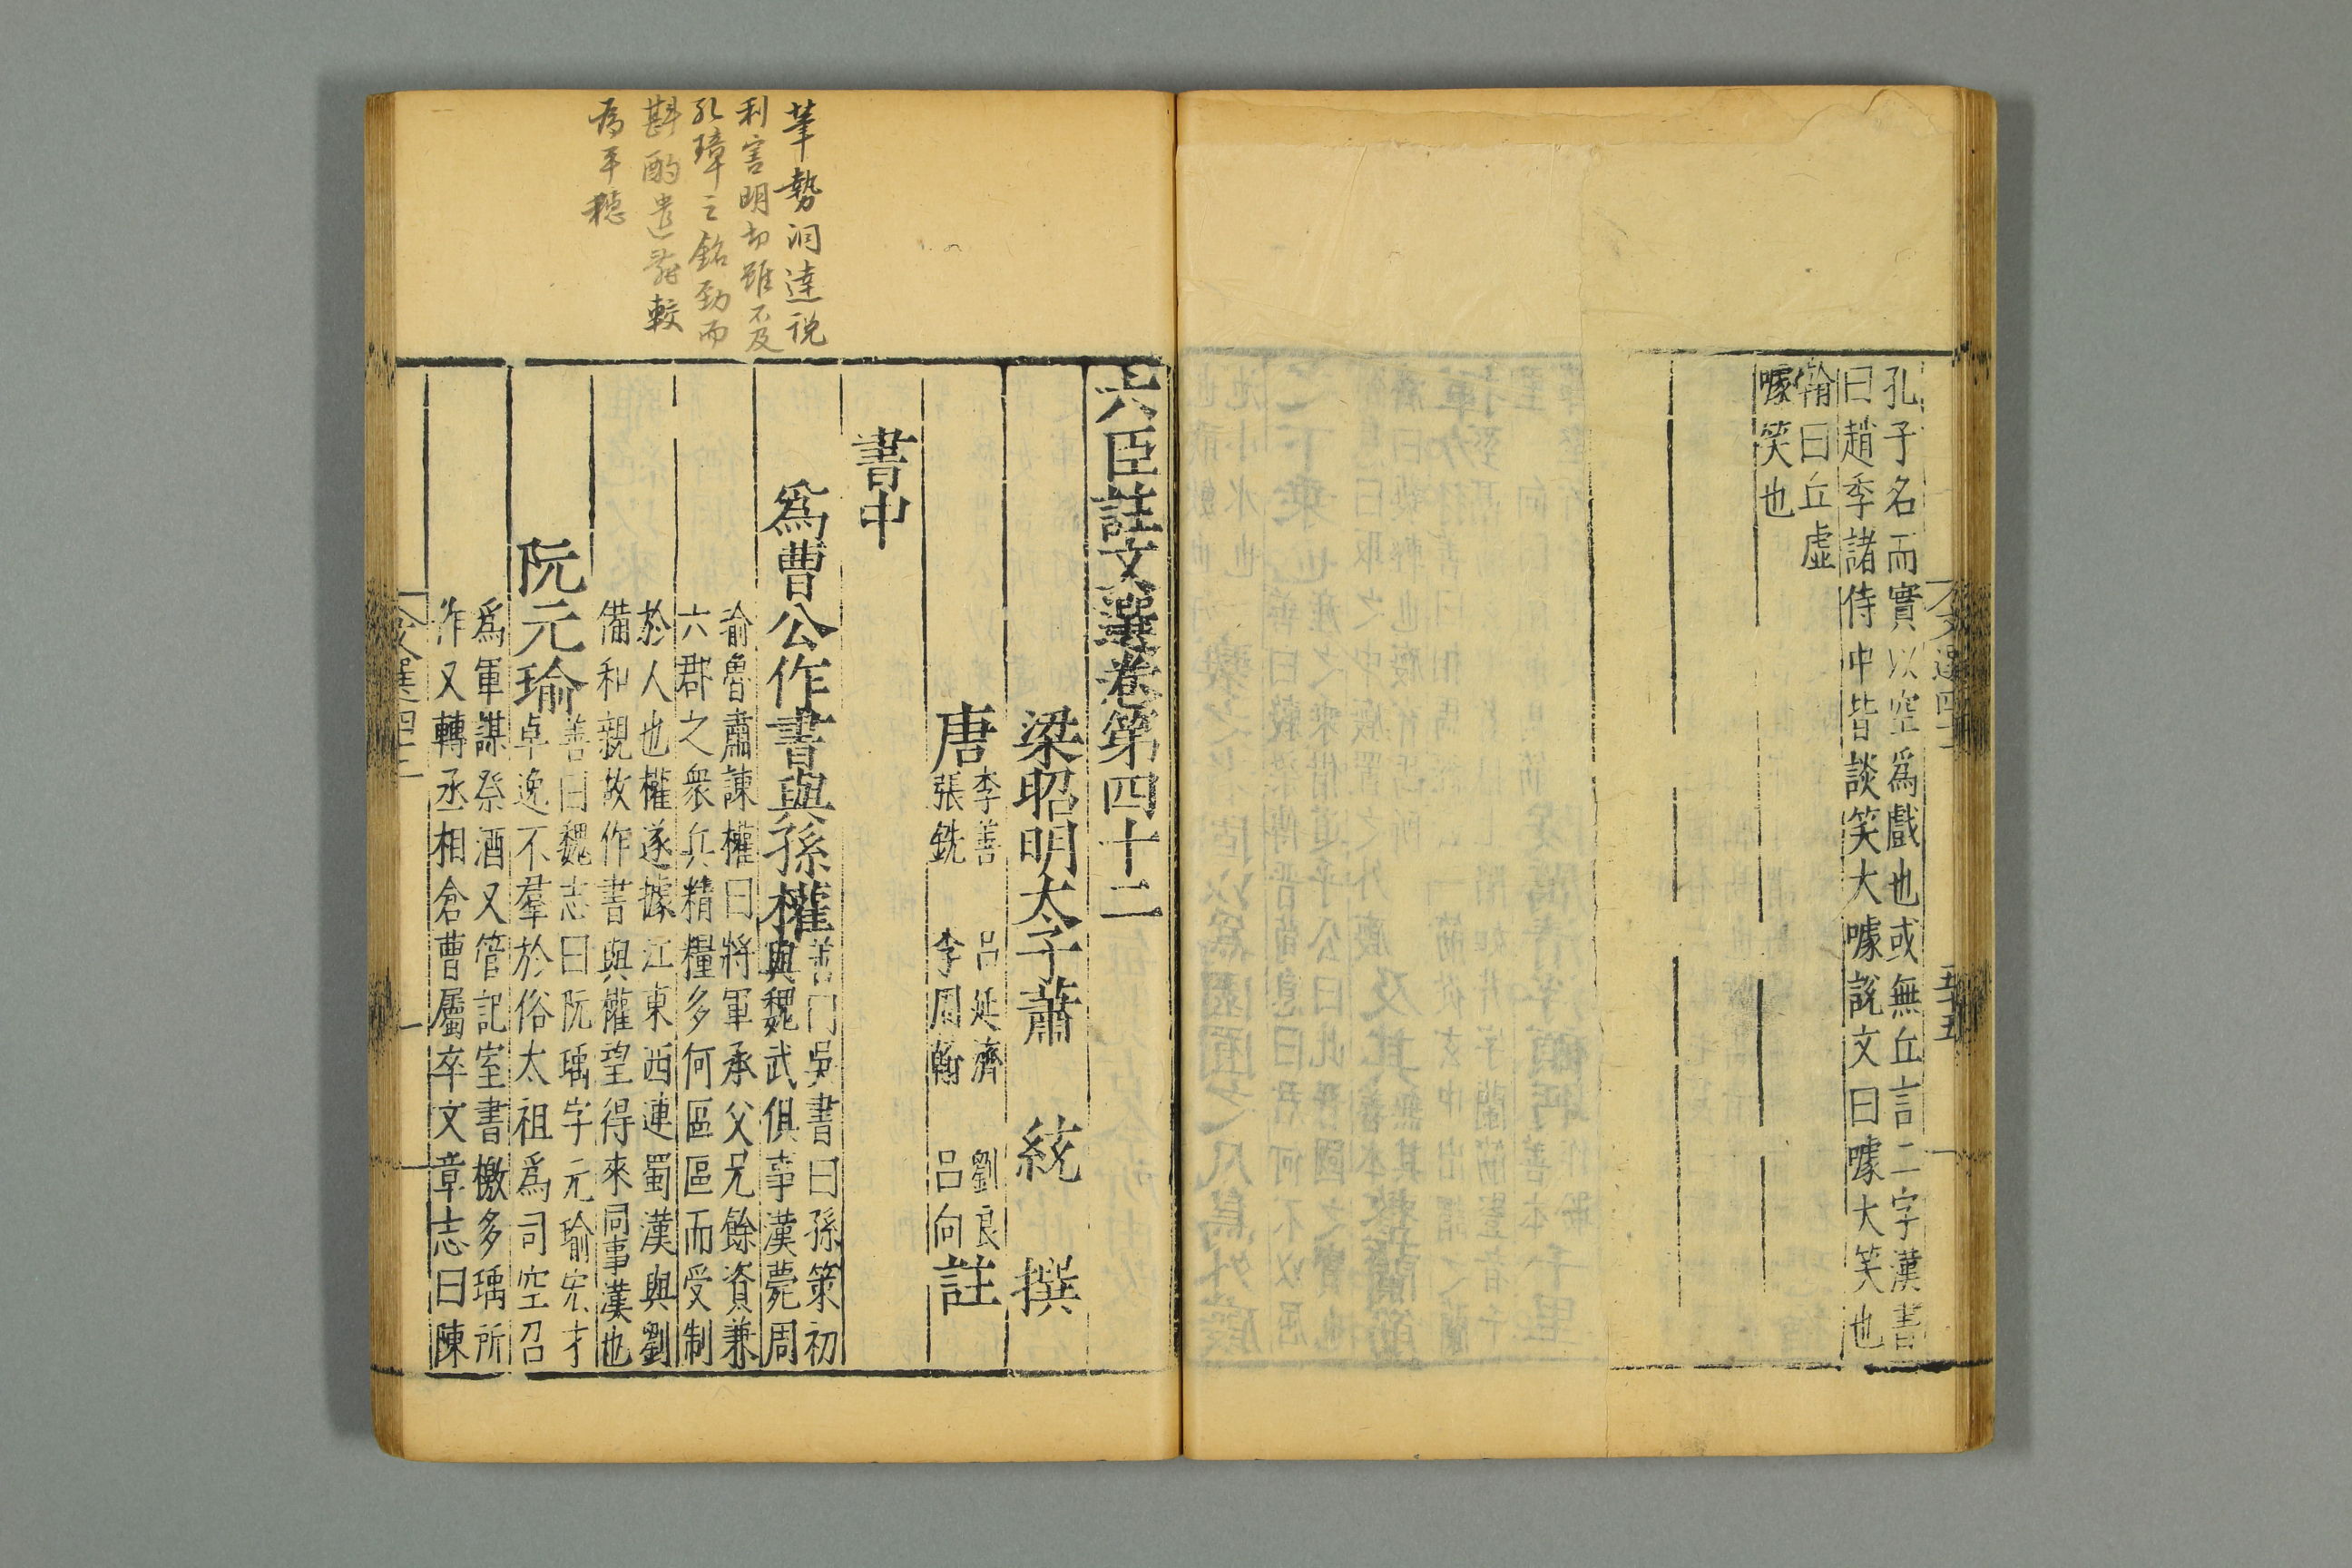 孔子名而實以空爲戲也或無丘言二字漢書
曰趙季諸侍中皆談笑大噱說文曰噱大笑也
翰曰丘虛
噱笑也
五十五
筆勢洞達說
利害明切雖不及
孔璋之銘勁而
斟酌遣辭較
爲平穩
六臣註文選卷第四十二
梁昭明太子蕭統撰
唐
李善 呂延濟 劉良
張銑 李周翰 呂向
註
書中
爲曹公作書與孫權
善門吳書曰孫策初
與魏武俱事漢薨周
瑜魯肅諫權曰將軍承父兄餘資兼
六郡之衆兵精糧多何區區而受制
於人也權遂據江東西連蜀漢與劉
備和親故作書與權望得來同事漢也
阮元瑜
善曰魏志曰阮瑀字元瑜宏才
卓逸不羣於俗太祖爲司空召
爲軍謀祭酒又管記室書檄多瑀所
作又轉丞相倉曹屬卒文章志曰陳